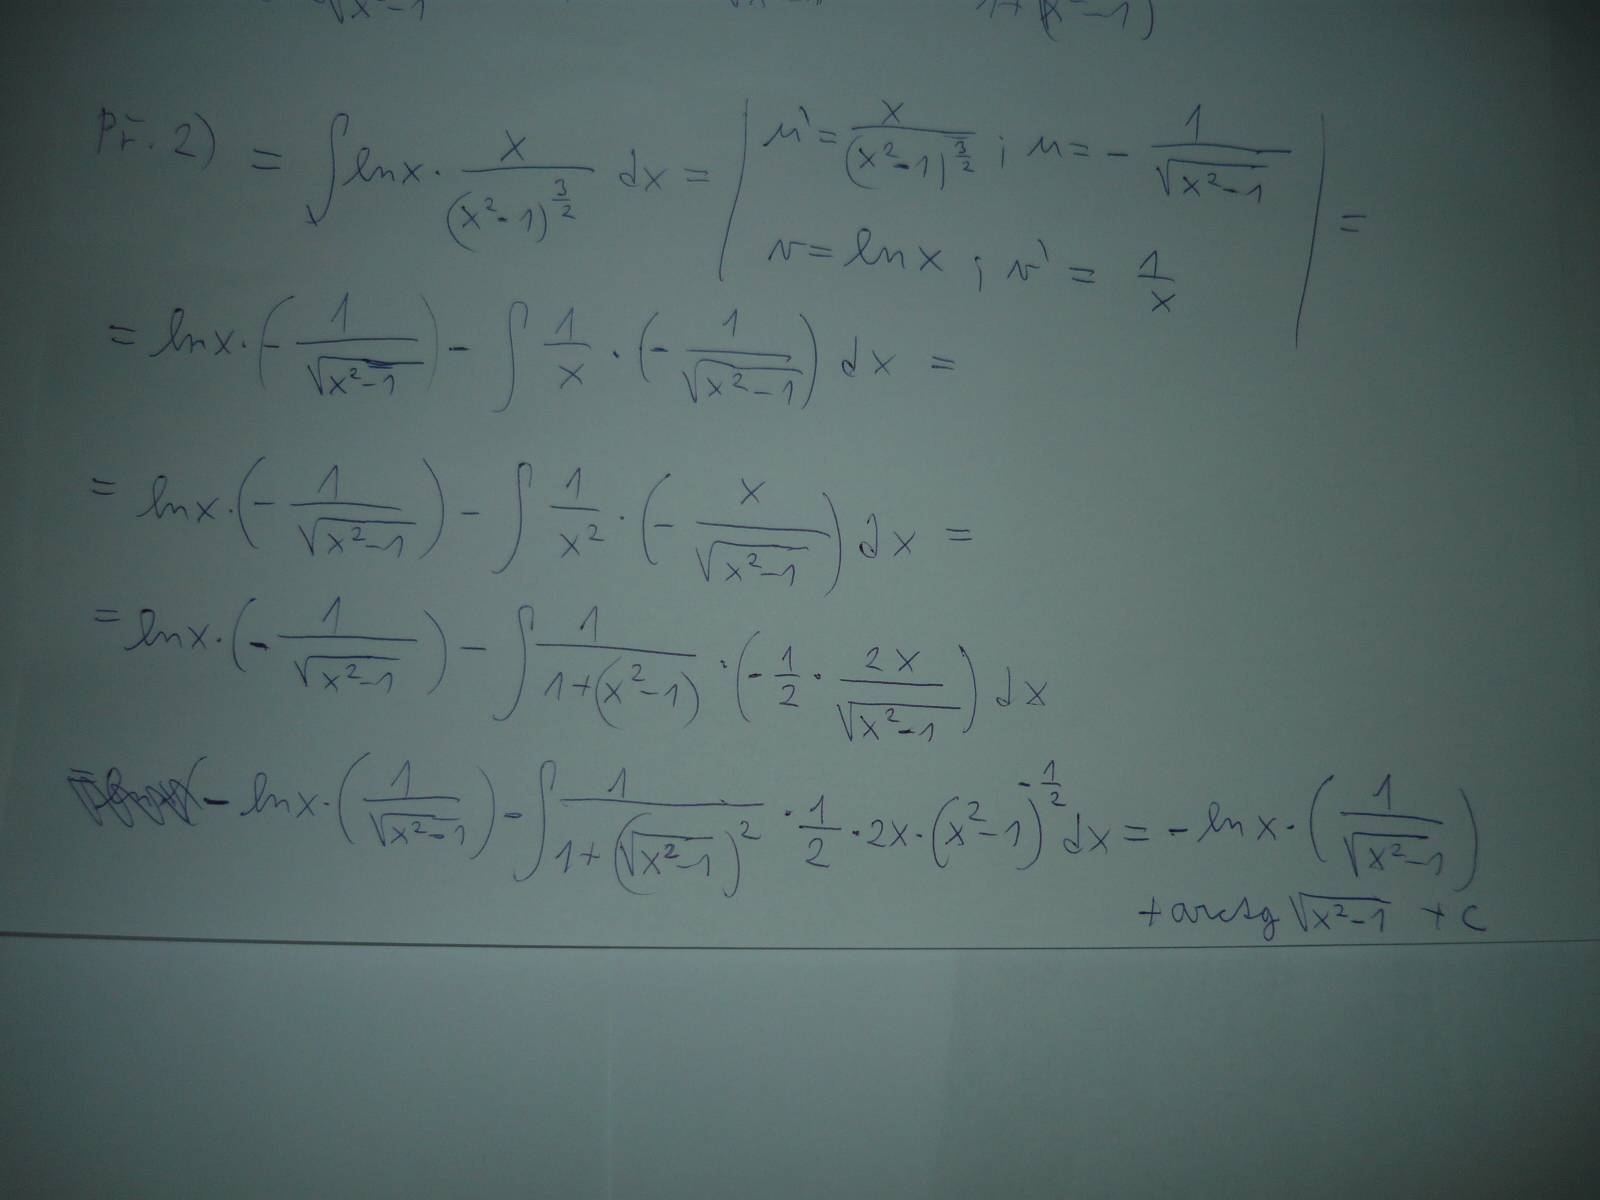 √x²-1 √x²-1 1+(x²-1)
Př. 2) = ∫ ln x · x/(x²-1)^(3/2) dx = | u' = x/(x²-1)^(3/2) ; u = - 1/√x²-1 | =
v = ln x ; v' = 1/x
= ln x · (- 1/√x²-1) - ∫ 1/x · (- 1/√x²-1) dx =
= ln x · (- 1/√x²-1) - ∫ 1/x² · (- x/√x²-1) dx =
= ln x · (- 1/√x²-1) - ∫ 1/(1+(x²-1)) · (- 1/2 · 2x/√x²-1) dx
- ln x · (1/√x²-1) - ∫ 1/(1+(√x²-1)²) · 1/2 · 2x · (x²-1)^(-1/2) dx = - ln x · (1/√x²-1)
+ arctg √x²-1 + c